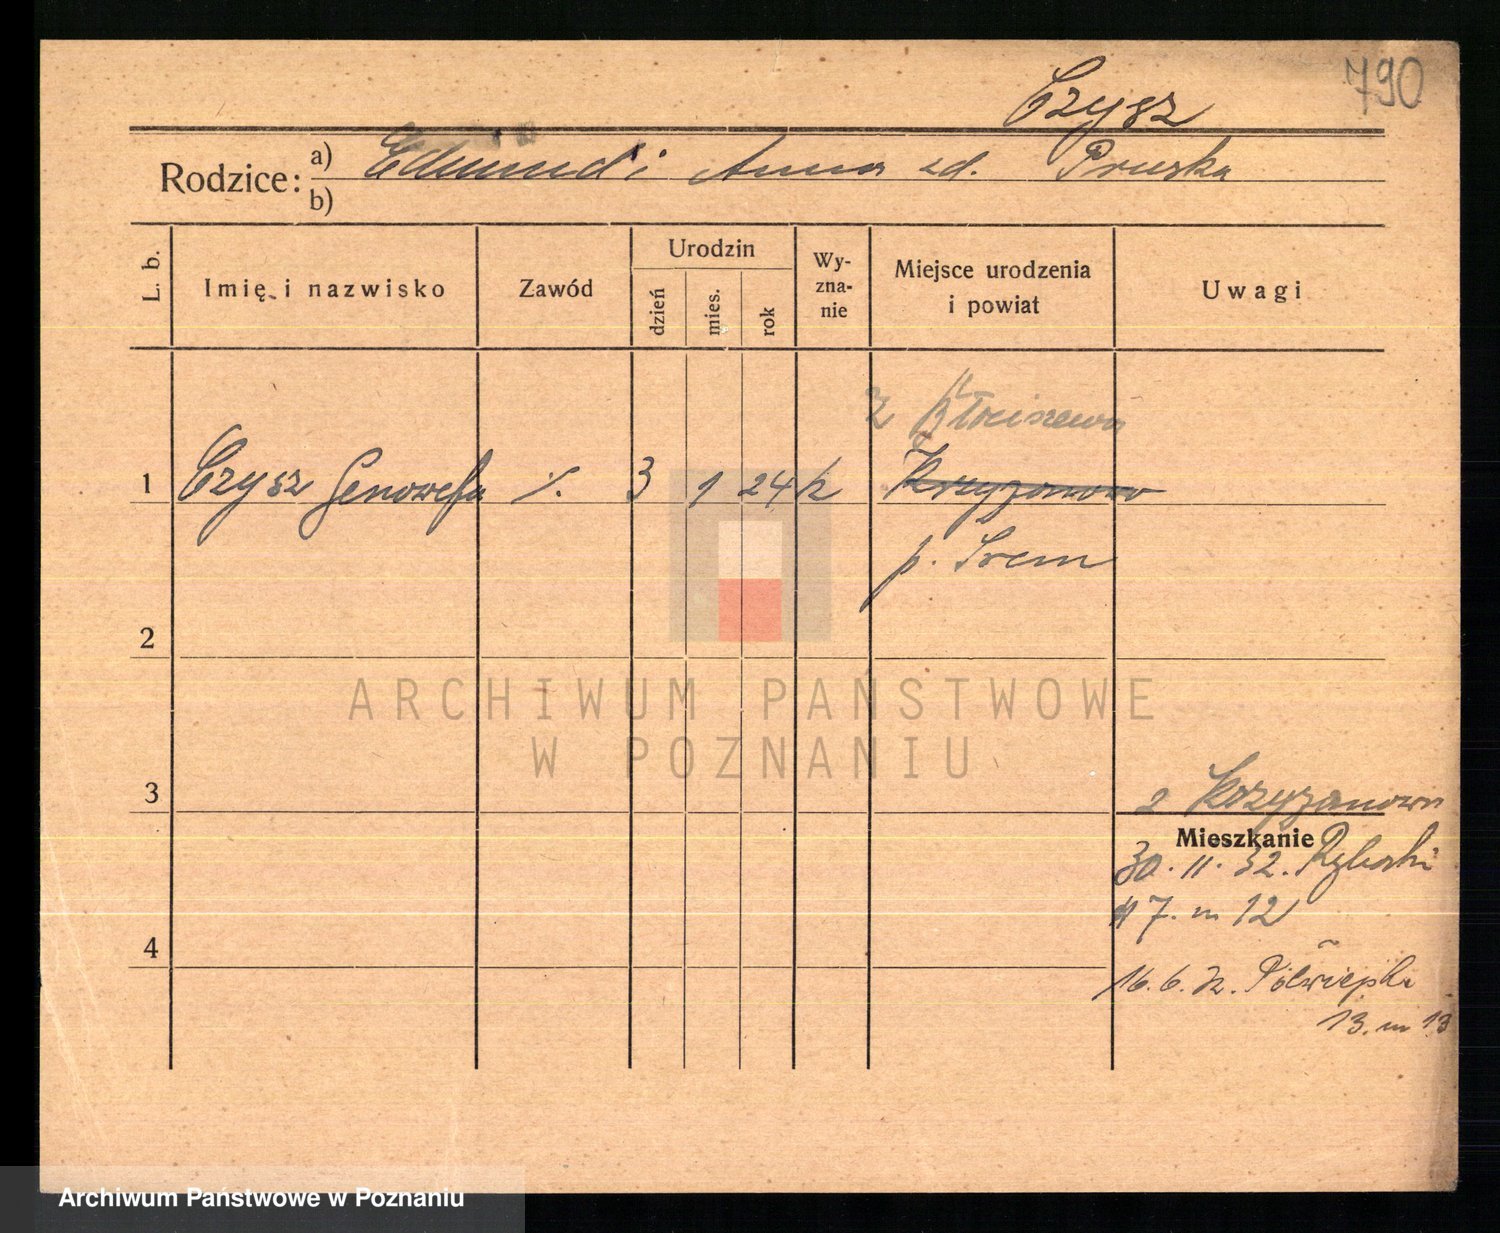 790
Czysz
Rodzice: a) Edmund i Anna zd. Pruska
b)
L. b.
Imię i nazwisko
Zawód
Urodzin
dzień
mies.
rok
Wy-
zna-
nie
Miejsce urodzenia
i powiat
Uwagi
Włościszewo
1 Czysz Genowefa ./. 3 1 24 k Krzyżanowo
p. Śrem
2
3
z Krzyżanowa
Mieszkanie
30.11.32. Rybaki
17. m 12
4
16.6. Półwiejska
13. m 13
ARCHIWUM PAŃSTWOWE
W POZNANIU
Archiwum Państwowe w Poznaniu